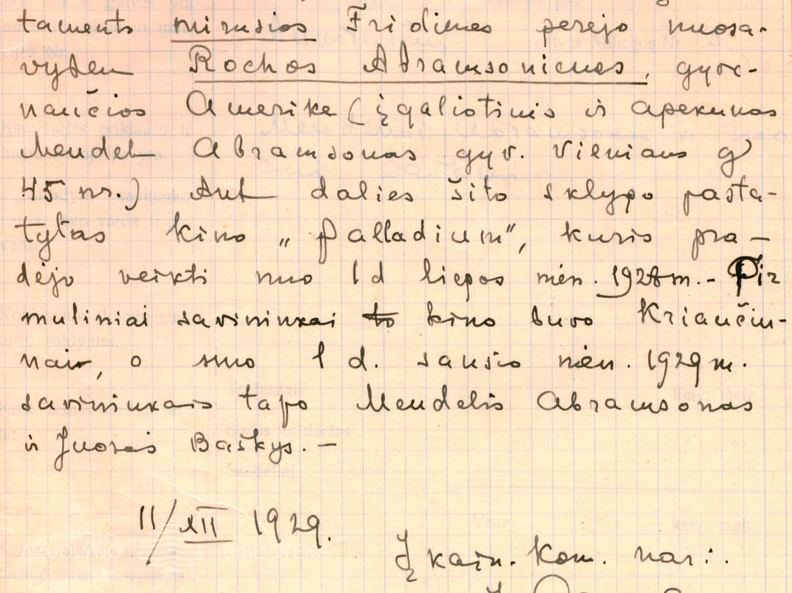 tamento mirusios Fridienes perėjo nuosa-
vyben Rochos Abramsonienes, gyve-
naučios Amerike (įgaliotinis ir apekunas
Mendel Abramsonas gyv. Vilniaus g
45 nr.) Ant dalies šito sklypo pasta-
tytas kino „Palladium", kuris pra-
dėjo veikti nuo 1 d liepos mėn. 1928 m. - Pir
muliniai savininkai to kino buvo Kriaučiu-
nai, o nuo 1 d. sausio mėn. 1929 m.
savininkais tapo Mendelis Abramsonas
ir Baškys. -
11/XII 1929.
Įkain. Kom. nar.: